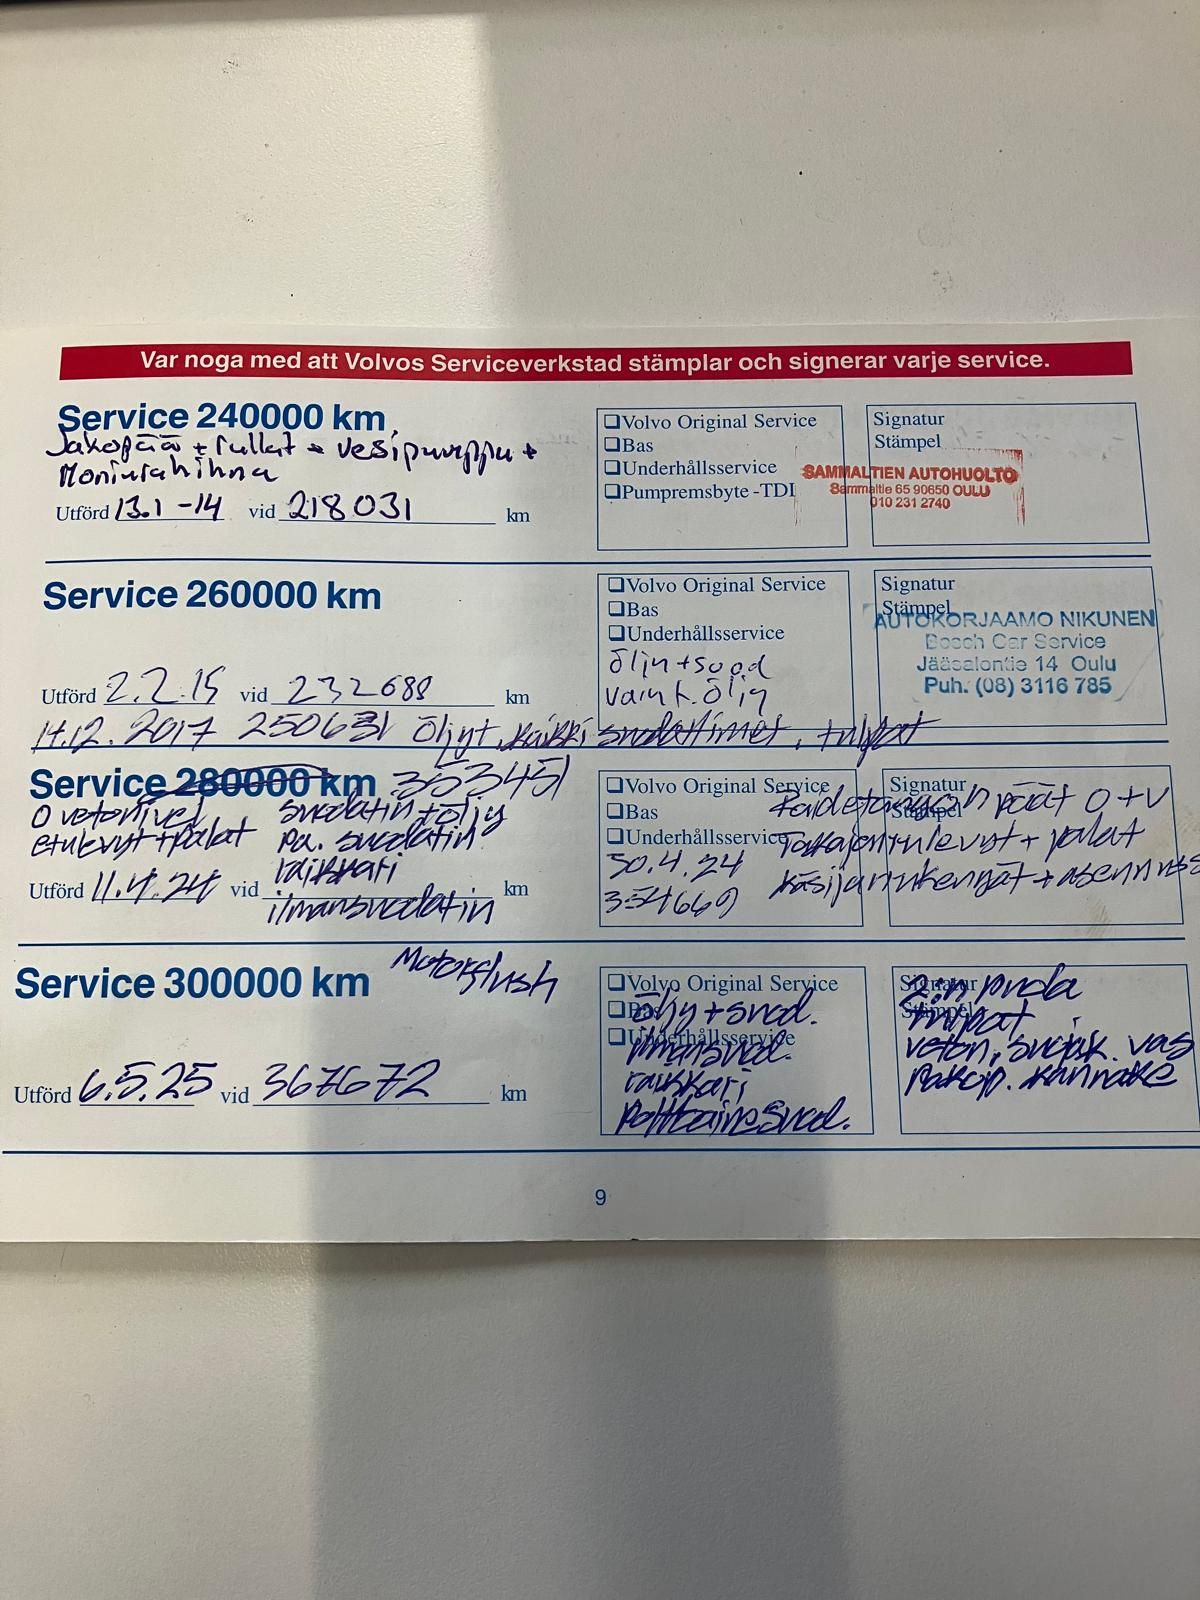 Var noga med att Volvos Serviceverkstad stämplar och signerar varje service.
Service 240000 km
Jakopää + rullat + vesipumppu +
Moniurahihna
Utförd 13.1 -14 vid 218031 km
❑Volvo Original Service
❑Bas
❑Underhållsservice
❑Pumpremsbyte -TDI
Signatur
Stämpel
SAMMALTIEN AUTOHUOLTO
Sammaltie 65 90650 OULU
010 231 2740
Service 260000 km
Utförd 2.2.15 vid 232688 km
❑Volvo Original Service
❑Bas
❑Underhållsservice
öljy + suod
vaiht. öljy
Signatur
Stämpel
AUTOKORJAAMO NIKUNEN
Bosch Car Service
Jääsalontie 14 Oulu
Puh. (08) 3116 785
14.12.2017 250631 öljyt, kaikki suodattimet, tulpat
Service 280000 km 353451
O vetonivel
etulevyt + palat
suodatin + öljy
pa. suodatin
raikkari
ilmansuodatin
Utförd 11.4.24 vid km
❑Volvo Original Service
❑Bas
❑Underhållsservice
30.4.24
354669
Signatur
Stämpel
Raidetangon päät O + V
Takajarrulevyt + palat
käsijarrukengät + asennus
Service 300000 km Motorflush
Utförd 6.5.25 vid 367672 km
❑Volvo Original Service
❑Bas
❑Underhållsservice
öljy + suod.
ilmansuod.
raikkari
polttoainesuod.
Signatur
Stämpel
tulpat
veton. suojak. vas
Pakop. kannake
9